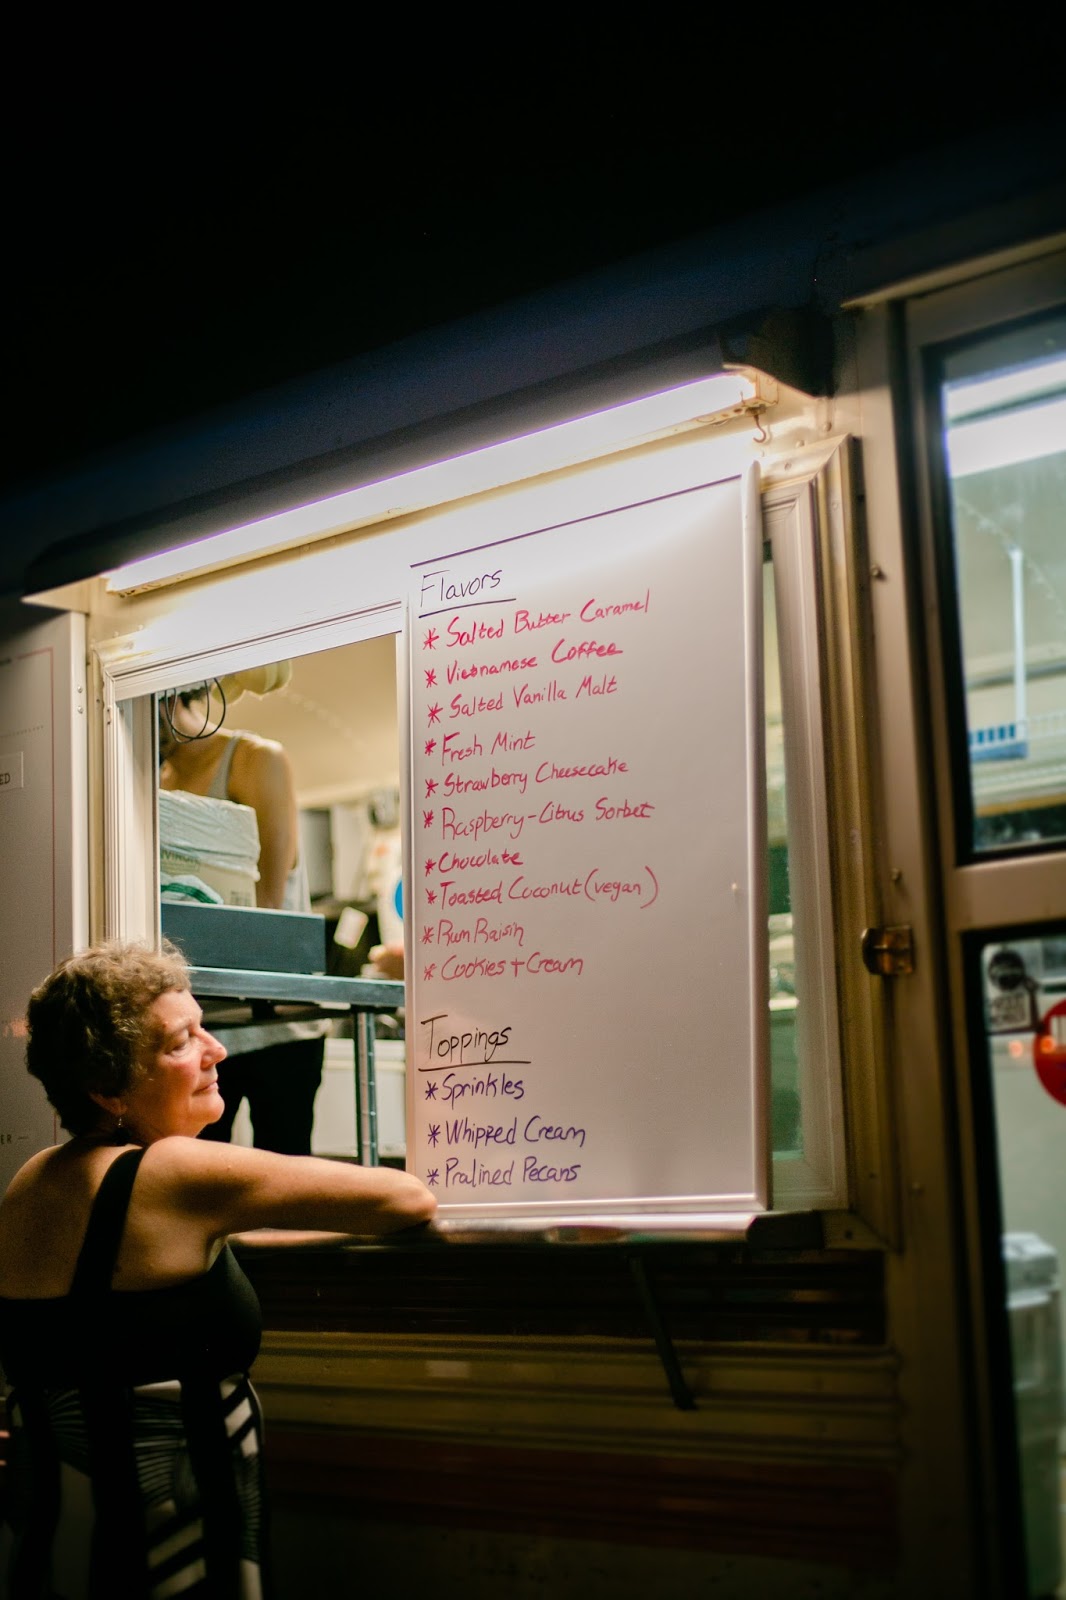 Flavors
* Salted Butter Caramel
* Vietnamese Coffee
* Salted Vanilla Malt
* Fresh Mint
* Strawberry Cheesecake
* Raspberry-Citrus Sorbet
* Chocolate
* Toasted Coconut (vegan)
* Rum Raisin
* Cookies + Cream
Toppings
* Sprinkles
* Whipped Cream
* Pralined Pecans